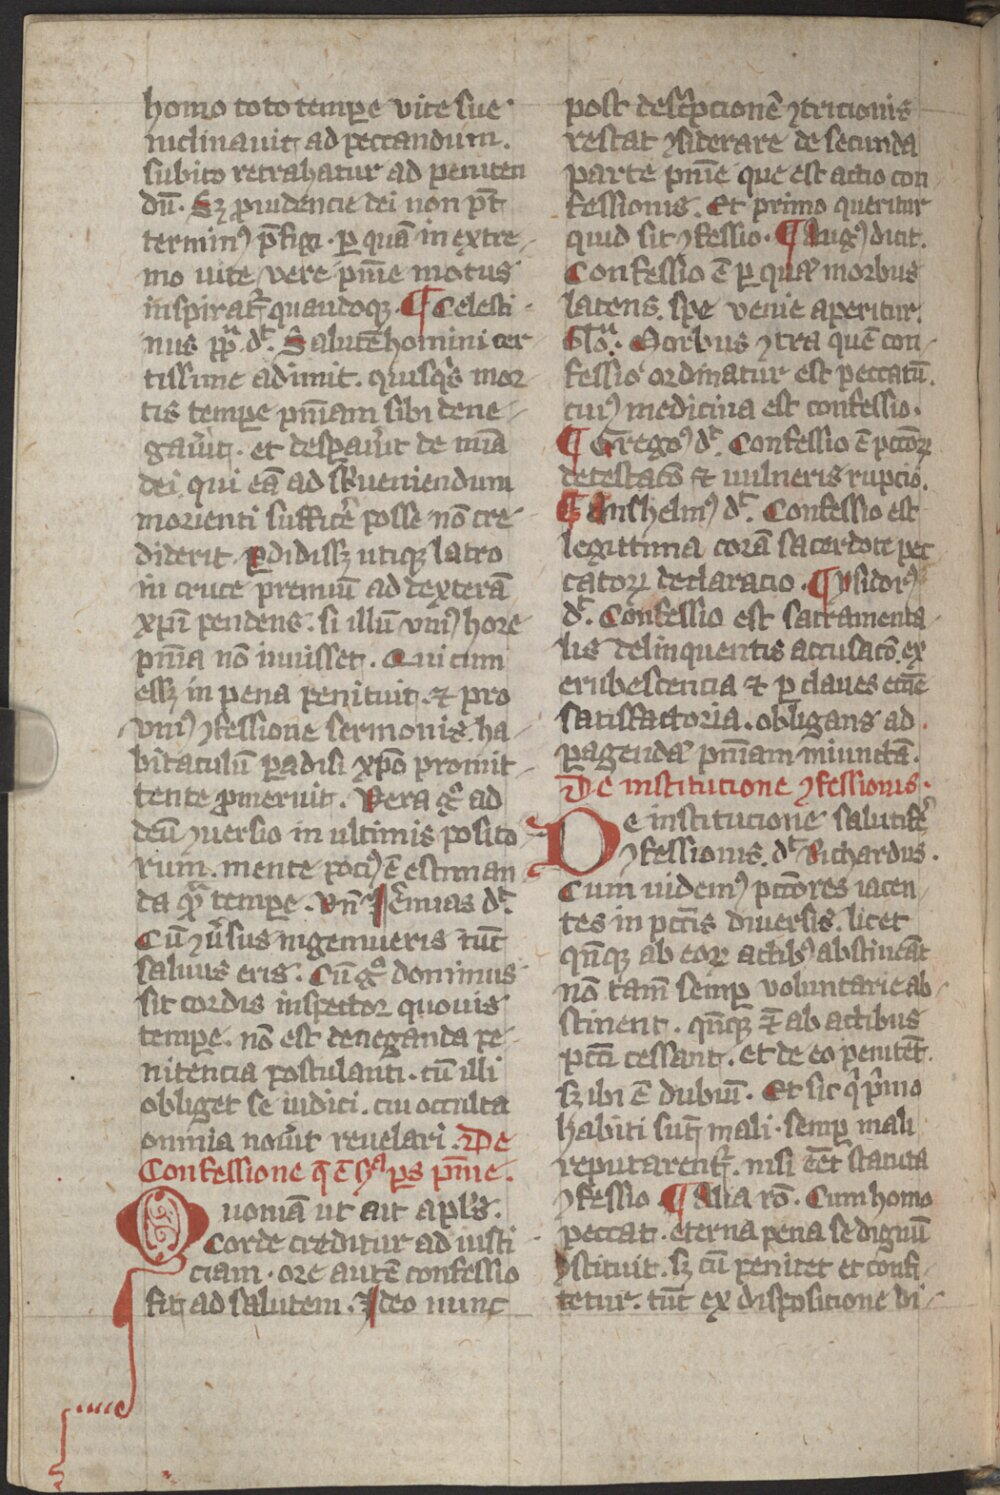 homo toto tempe vite sue
inclinauit ad peccandum.
subito retrahatur ad peniten
dū. Sz prudencie dei non pt̄
terminꝰ p̄figi. ꝑ quā in extre-
mo uite vere pn̄ie motus
inspirat᷑ quandoqꝫ. ¶ Celesti-
nus pp̄a dt̄. Salutē homini cer-
tissime adimit. quisqͥs mor-
tis tempe pn̄iam sibi dene-
gau̾it. et despau̾it de mīa
dei. qui eā ad sb̾ueniendum
morienti suffice̾ posse nō cre-
diderit. ꝑdidissꝫ utiqꝫ latro
in cruce premiū ad dexterā
xp̄i pendens. si illū vniꝰ hore
pn̄ia nō iuuisset. Qui cum
essꝫ in pena penituit. ⁊ pro
vniꝰ ꝯfessione sermonis. ha-
bitaculū ꝑadisi xp̄o promit-
tente ꝓmeruit. Vera gͦ ad
deū ꝯuersio in ultimis posito
rum. mente pociꝰ ē estiman
da qͣ tempe. Vn̄ Je̾mias dt̄.
Cū ꝯu̾sus ingemueris tūc
saluus eris. Cū gͦ dominus
sit cordis inspector quouis
tempe. nō est deneganda pe-
nitencia postulanti. cū illi
obliget se iudici. cui occulta
omnia nou̾it reuelari. De
Confessione q̄ ē sᷓa ps pn̄ie.
Quoniā ut ait apl̾s.
Corde creditur ad iusti
ciam. ore autē confessio
fit ad salutem. Ideo nunc
post descͥpcionē ꝯtricionis
restat ꝯsiderare de secunda
parte pn̄ie que est actio con
fessionis. Et primo queritur
quid sit ꝯfessio. ¶ Augꝰ dicit.
Confessio ē ꝑ quā morbus
latens. spe venie aperitur.
Glōa. Morbus ꝯtra quē con-
fessio ordinatur est peccatū.
cuiꝰ medicina est confessio.
¶ Gregoꝰ dt̄. Confessio ē pctōꝝ
detestacō ⁊ uulneris rupcio.
¶ Anshelmꝰ dt̄. Confessio est
legittima corā sacerdote pec
catoꝝ declaracio. ¶ Ysidorꝰ
dt̄. Confessio est sacramenta-
lis delinquentis accusacō. ex
erubescencia ⁊ ꝑ claues eccīe
satisfactoria. obligans ad
ꝑagendā pn̄iam iniunctā.
De institucione ꝯfessionis.
De institucione salutife̾
ꝯfessionis. dt̄ Richardus.
Cum uidemꝰ pctōres iacen-
tes in pctīs diuersis. licet
qn̄qꝫ ab eoꝝ actibꝰ abstineāt
nō tam̄ semꝑ voluntarie ab-
stinent. qn̄qꝫ t̄n ab actibus
pctī cessant. et de eo penitēt.
sꝫ ibi ē dubiū. Et sic qͥ pͥmo
habiti sūt mali. semꝑ mali
reputarent᷑. nisi ēēt statuta
ꝯfessio ¶ Alia rō. Cum homo
peccat. eterna pena se dignū
ꝯstituit. sꝫ cū penitet et confi-
tetur. tūc ex disposicione di-